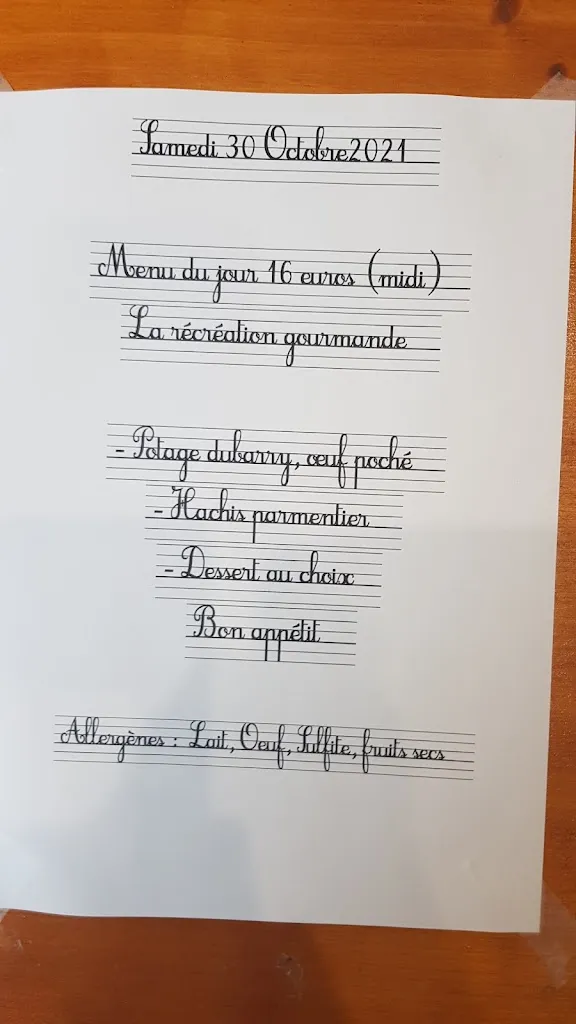 Samedi 30 Octobre2021
Menu du jour 16 euros (midi)
La récréation gourmande
- Potage dubarry, oeuf poché
- Hachis parmentier
- Dessert au choix
Bon appétit
Allergènes : Lait, Oeuf, Sulfite, fruits secs